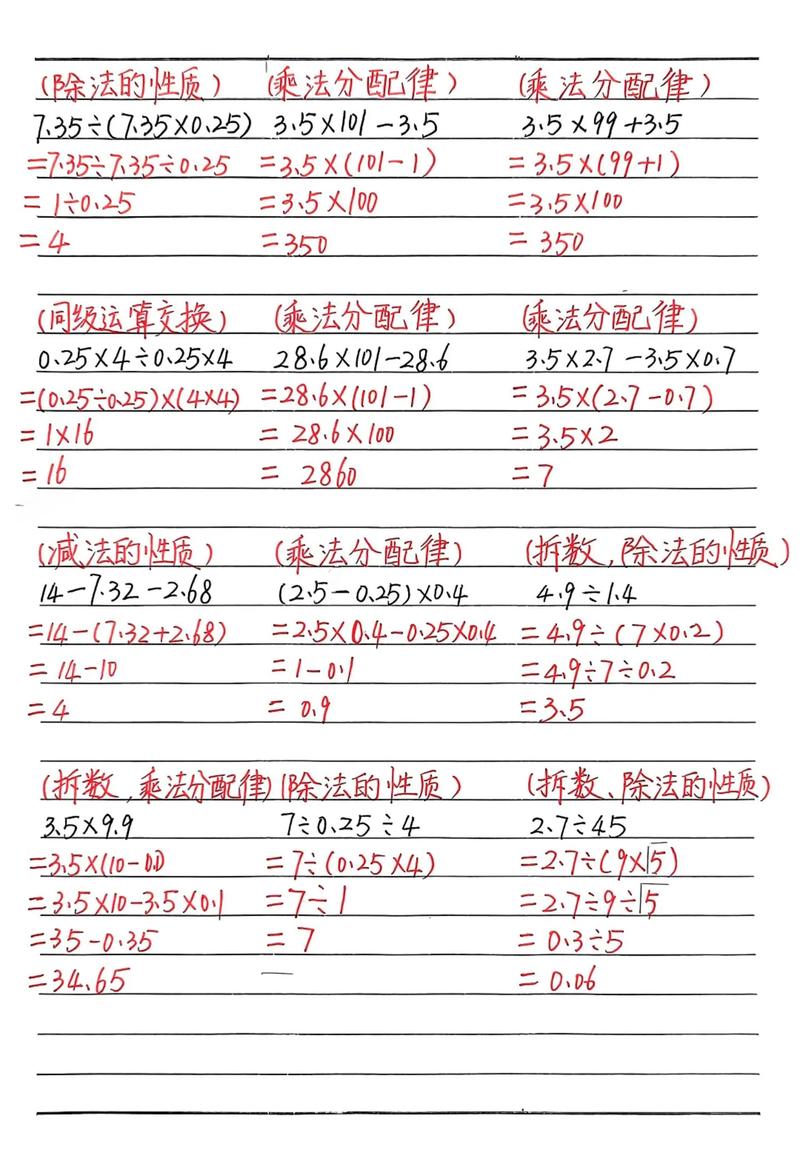 (除法的性质) (乘法分配律) (乘法分配律)
7.35÷(7.35×0.25) 3.5×101-3.5 3.5×99+3.5
=7.35÷7.35÷0.25 =3.5×(101-1) =3.5×(99+1)
=1÷0.25 =3.5×100 =3.5×100
=4 =350 =350
(同级运算交换) (乘法分配律) (乘法分配律)
0.25×4÷0.25×4 28.6×101-28.6 3.5×2.7-3.5×0.7
=(0.25÷0.25)×(4×4) =28.6×(101-1) =3.5×(2.7-0.7)
=1×16 =28.6×100 =3.5×2
=16 =2860 =7
(减法的性质) (乘法分配律) (拆数,除法的性质)
14-7.32-2.68 (2.5-0.25)×0.4 4.9÷1.4
=14-(7.32+2.68) =2.5×0.4-0.25×0.4 =4.9÷(7×0.2)
=14-10 =1-0.1 =4.9÷7÷0.2
=4 =0.9 =3.5
(拆数,乘法分配律) (除法的性质) (拆数、除法的性质)
3.5×9.9 7÷0.25÷4 2.7÷45
=3.5×(10-0.1) =7÷(0.25×4) =2.7÷(9×5)
=3.5×10-3.5×0.1 =7÷1 =2.7÷9÷5
=35-0.35 =7 =0.3÷5
=34.65 =0.06